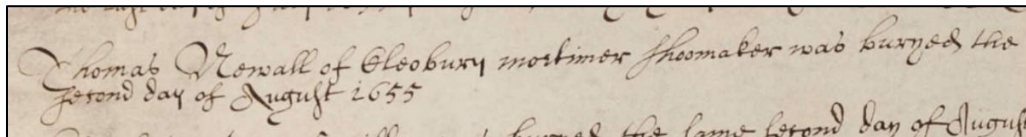 Thomas Newall of Cleobury mortimer shoomaker was buryed the
second day of August 1655
buryed the same second day of August